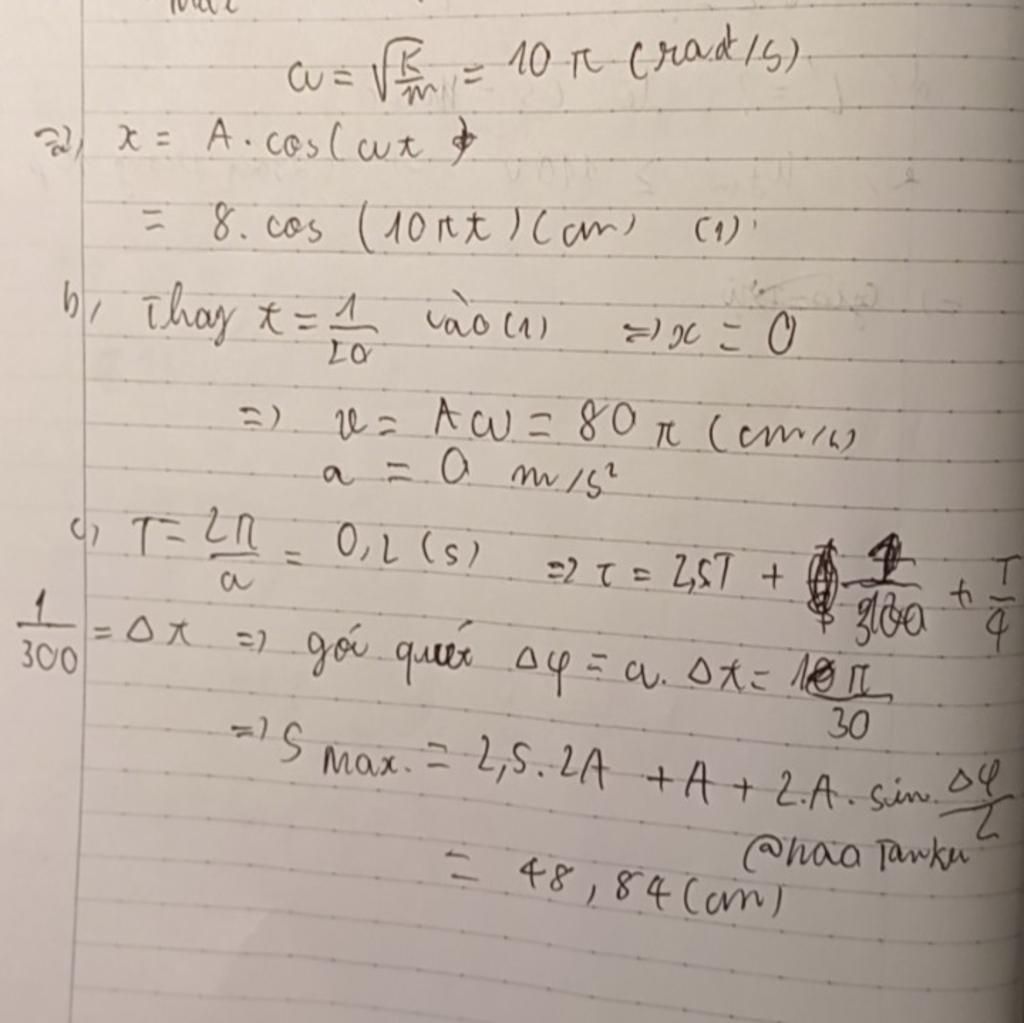 ω = √(k/m) = 10π (rad/s)
=> x = A.cos(ωt
= 8.cos (10πt) (cm) (1)
b, Thay t = 1/20 vào (1) => x = 0
=> v = Aω = 80π (cm/s)
a = 0 m/s²
c, T = 2π/ω = 0,2 (s) => t = 2,5T + 1/300 + T/4
1/300 = Δt => góc quét Δφ = ω.Δt = π/30
=> S max. = 2,5.2A + A + 2.A.sin Δφ/2
@haoTanku
= 48,84 (cm)